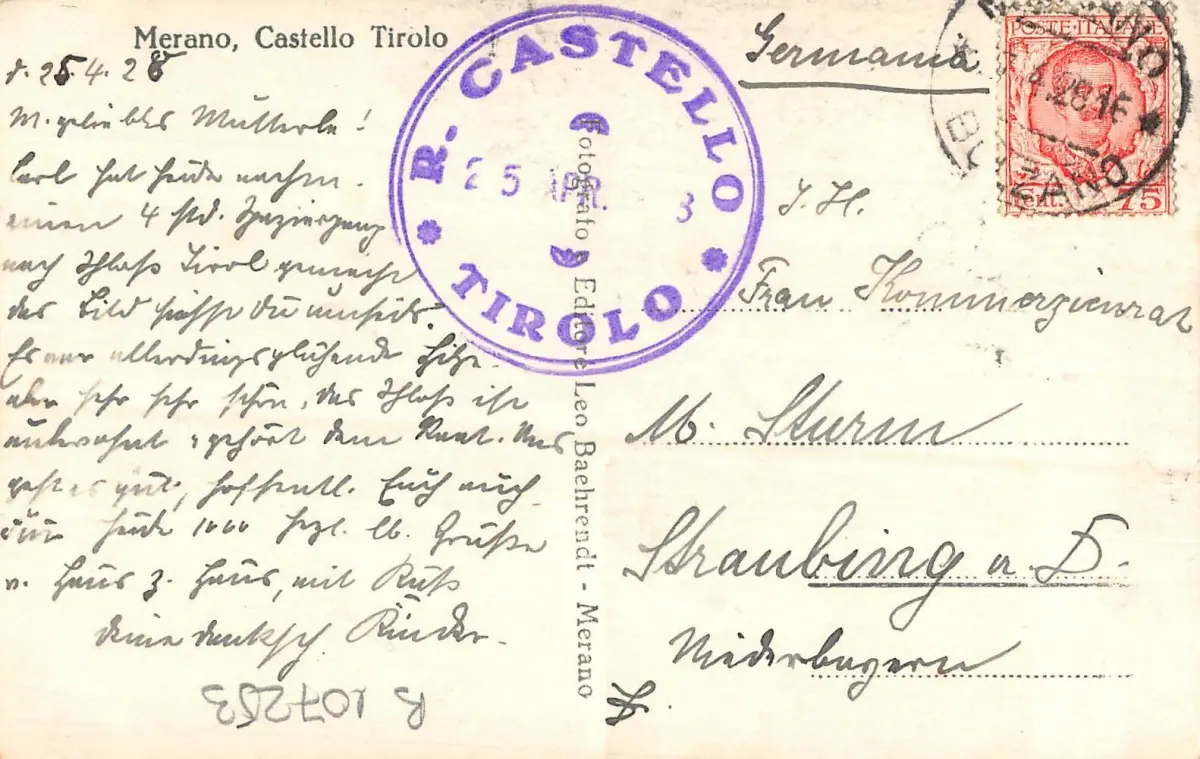 Merano, Castello Tirolo
d. 25.4.28
M. geliebtes Mutterle!
Carl hat heute nachm.
einen 4 std. Spaziergang
nach Schloß Tirol gemacht
das Bild siehst Du umseits.
Es war allerdings glühende Hitze
aber sehr sehr schön, das Schloß ist
unbewohnt, gehört dem Staat. Uns
geht es gut, hoffentl. Euch auch
Für heute 1000 herzl. lb. Grüße
v. Haus z. Haus, mit Kuß
deine dankb. Kinder.
B 107253
R. CASTELLO
25 APR. 8
TIROLO
Fotografo e Editore Leo Baehrendt - Merano
POSTE ITALIANE
Cent. 75
4.28.16
BOLZANO
Germania
I. H.
Frau Kommerzienrat
M. Sturm
Straubing a D.
Niederbayern